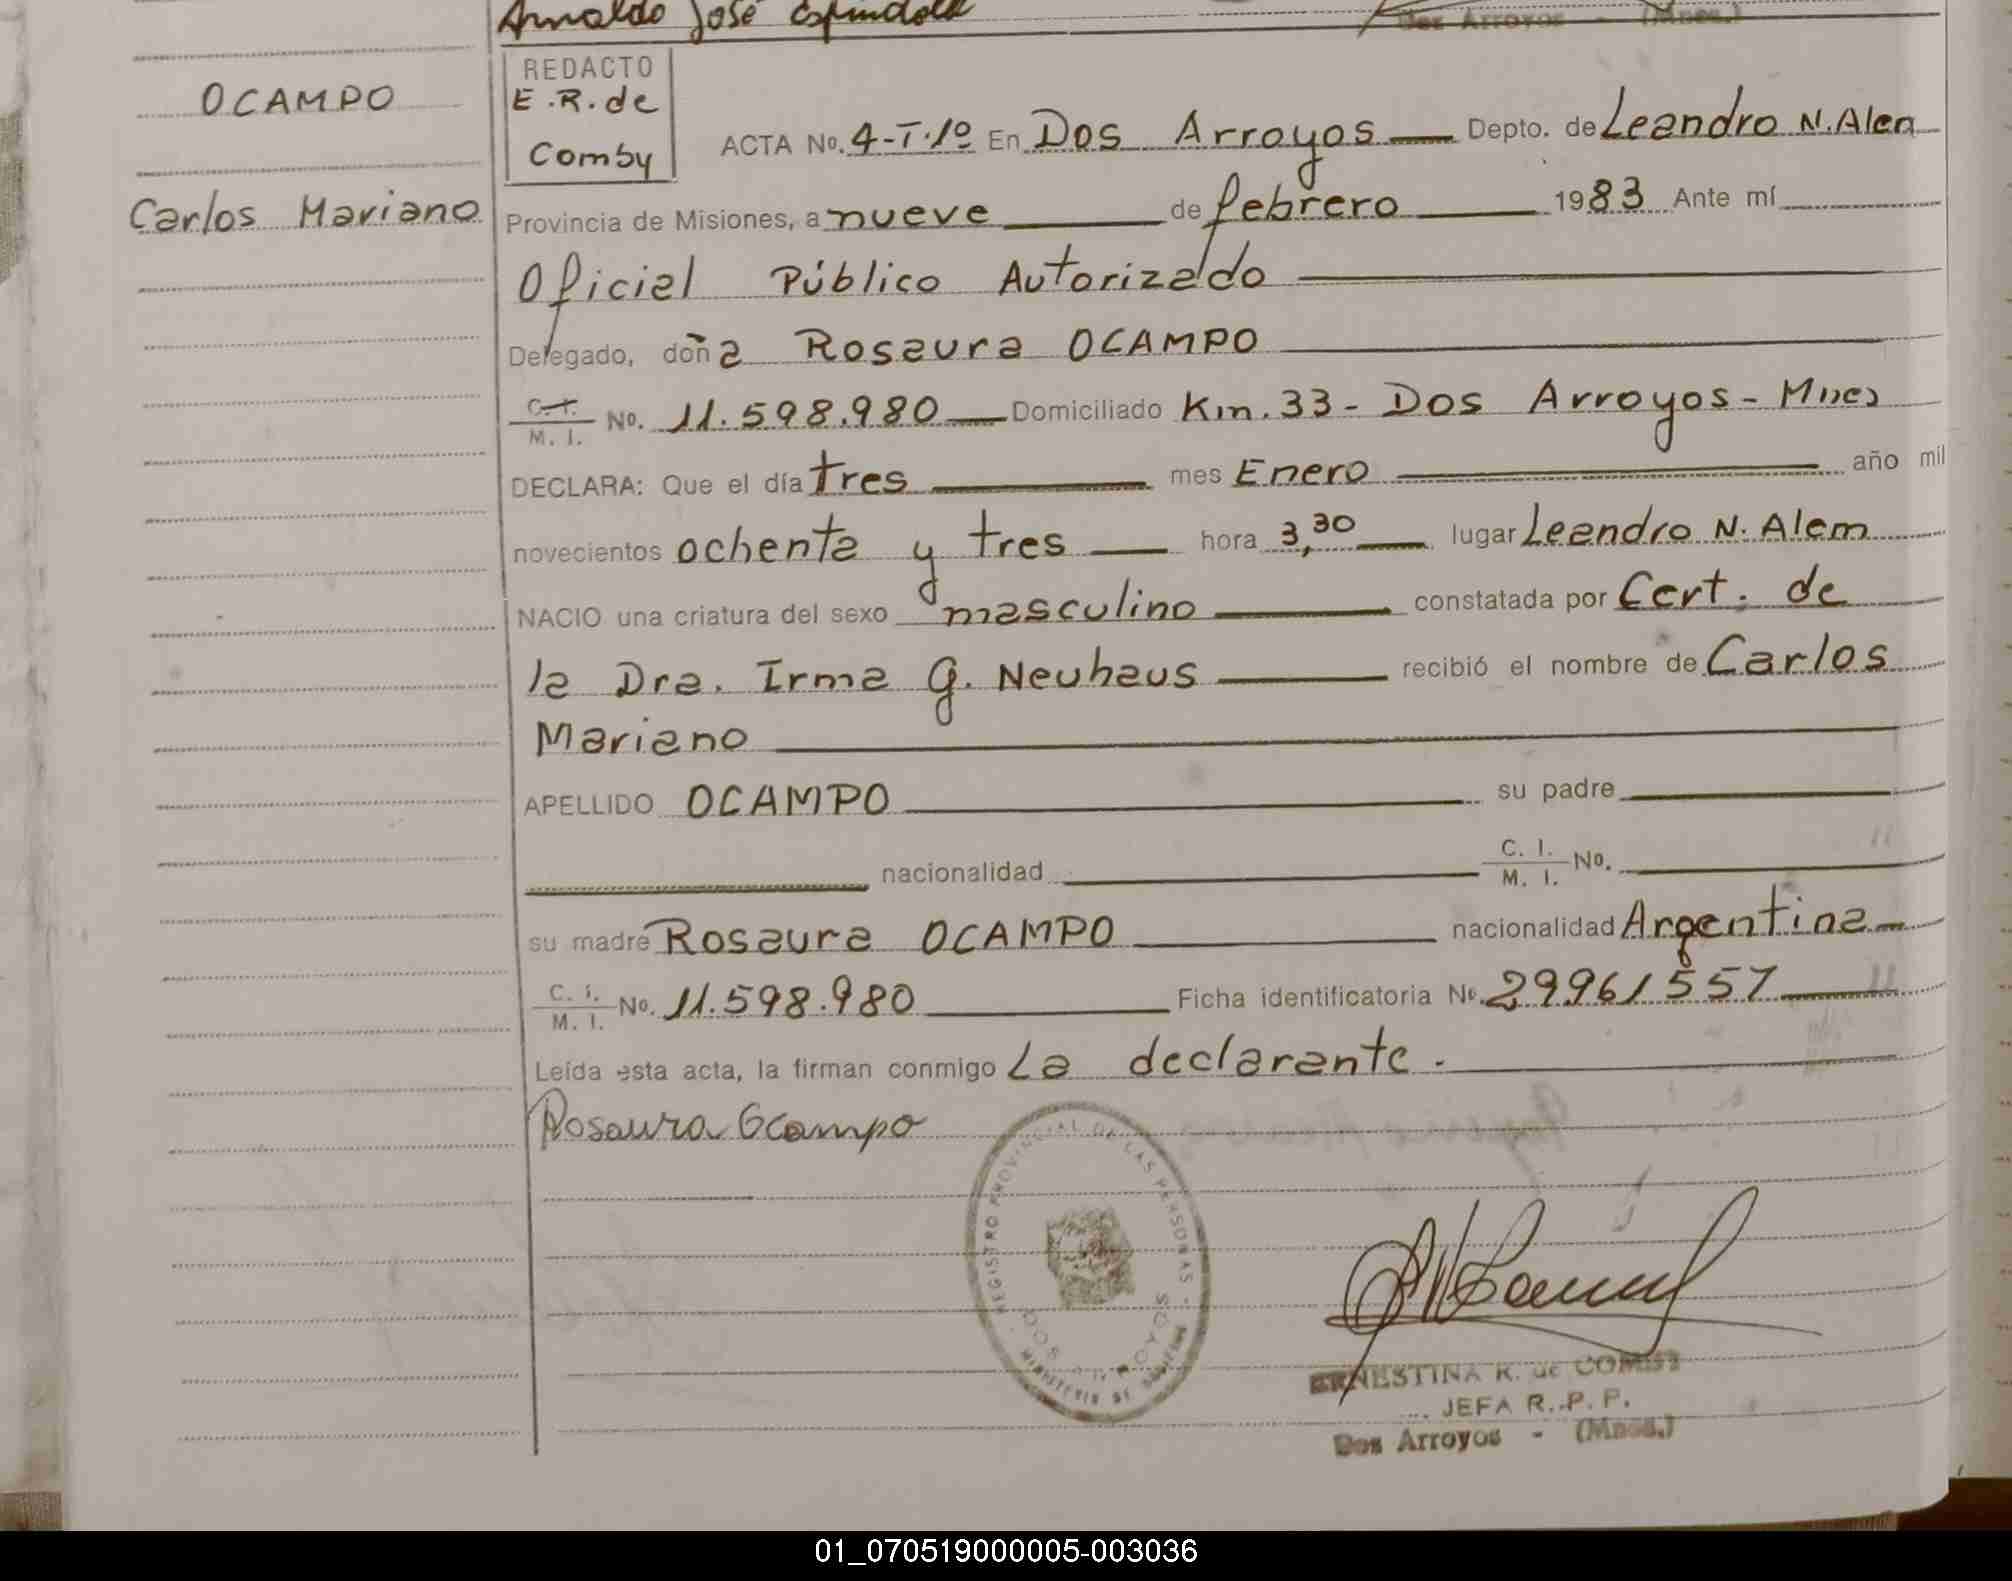 Arnaldo José Espíndola
Dos Arroyos - (Mnes.)
OCAMPO
Carlos Mariano
REDACTO
E.R. de
Comby
ACTA No. 4-T.1º En Dos Arroyos Depto. de Leandro N. Alem
Provincia de Misiones, a nueve de febrero 1983 Ante mí
Oficial Público Autorizado
Delegado, doña Rosaura OCAMPO
C. I. M. I. No. 11.598.980 Domiciliado Km. 33 - Dos Arroyos - Mnes
DECLARA: Que el día tres mes Enero año mil
novecientos ochenta y tres hora 3,30 lugar Leandro N. Alem
NACIO una criatura del sexo masculino constatada por Cert. de
la Dra. Irma G. Neuhaus recibió el nombre de Carlos
Mariano
APELLIDO OCAMPO su padre
nacionalidad C. I. M. I. No.
su madre Rosaura OCAMPO nacionalidad Argentina
C. I. M. I. No. 11.598.980 Ficha identificatoria No. 29961557
Leída esta acta, la firman conmigo La declarante.
Rosaura Ocampo
REGISTRO PROVINCIAL DE LAS PERSONAS
DOS ARROYOS
MINISTERIO DE GOBIERNO
ERNESTINA R. de COMBY
JEFA R. P. P.
Dos Arroyos - (Mnes.)
01_070519000005-003036